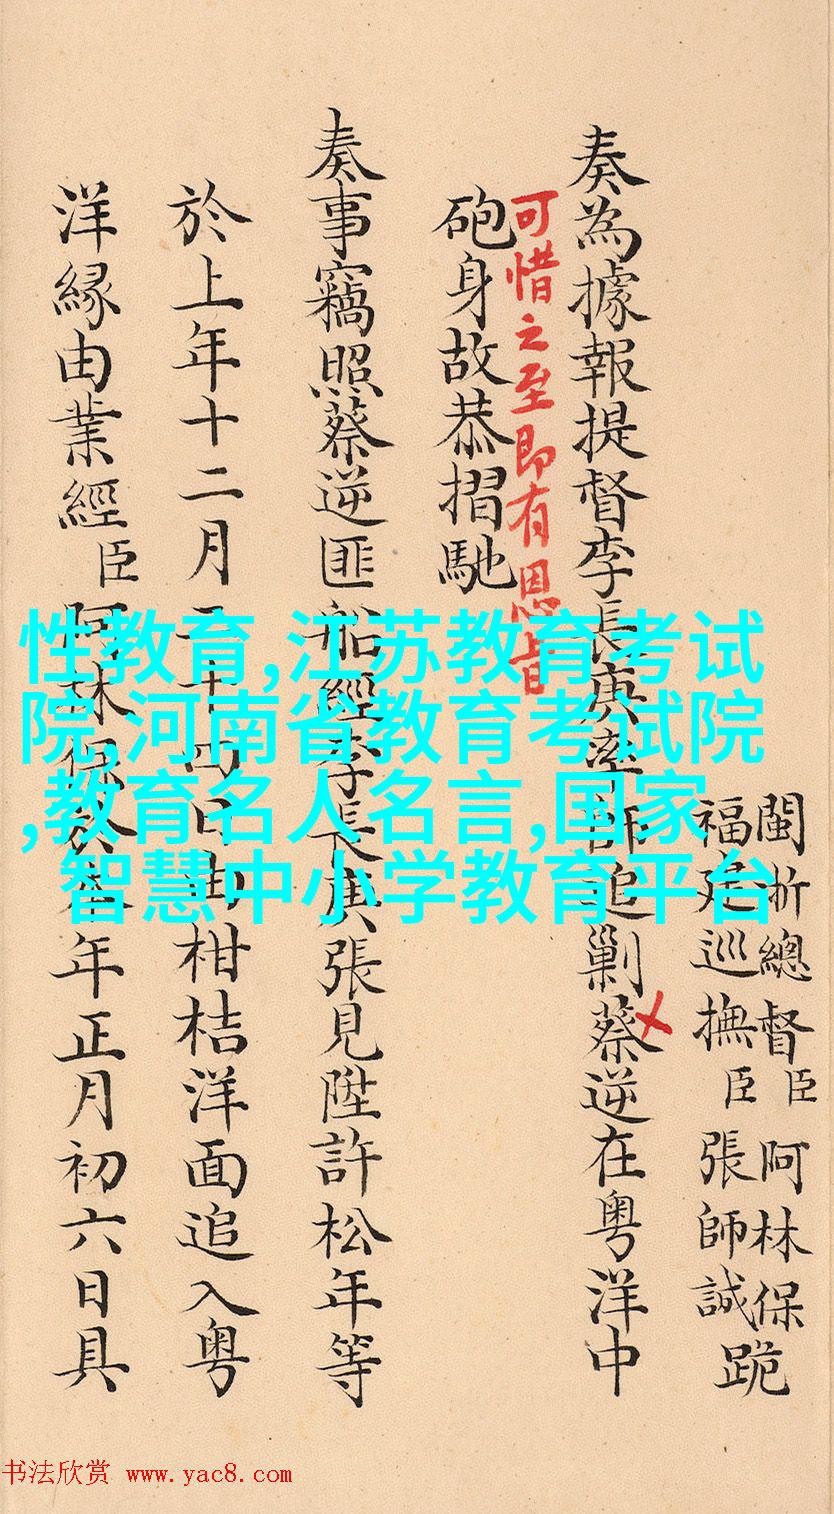 閩浙總督臣阿林保
福建巡撫臣張師誠
跪
奏為據報提督李長庚率師追剿蔡逆在粵洋中
可惜之至即有恩旨
砲身故恭摺馳
奏事竊照蔡逆匪船經李長庚張見陞許松年等
於上年十二月二十四日由柑桔洋面追入粵
洋緣由業經臣阿林保於年正月初六日具
性教育,江苏教育考试
院,河南省教育考试院
,教育名人名言,国家
智慧中小学教育平台
书法欣赏 www.yac8.com